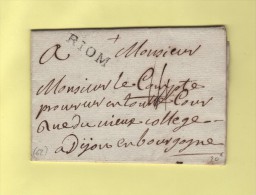 RIOM
A Monsieur
Monsieur le Compte
procureur en la Cour
Rue du vieux college
A Dijon en bourgogne